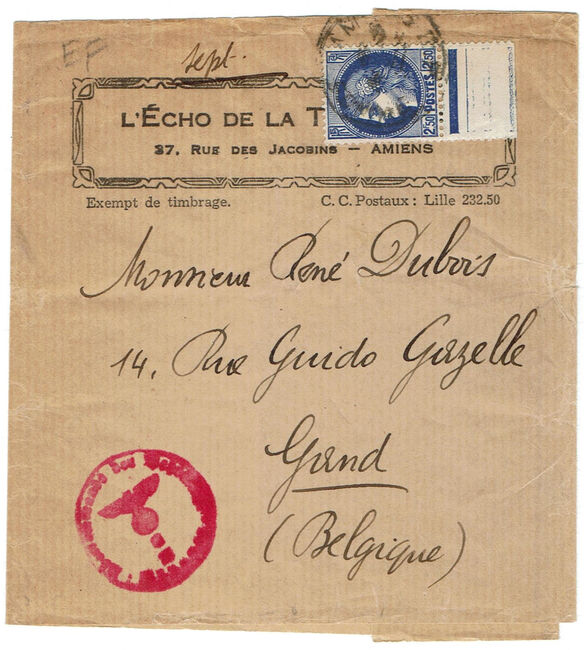 EF
Sept.
L'ÉCHO DE LA T
37, RUE DES JACOBINS — AMIENS
Exempt de timbrage. C. C. Postaux : Lille 232.50
2·50 POSTES 2·50
Monsieur René Dubois
14, Rue Guido Gezelle
Gand
(Belgique)